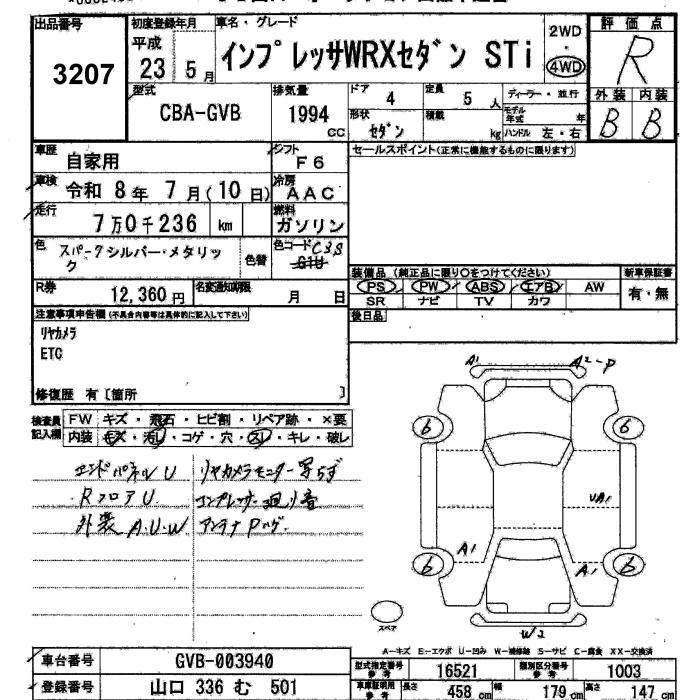 出品番号
3207
初度登録年月
平成
23 5月
車名・グレード
インプレッサWRXセダン STi
2WD
・
4WD
評価点
R
外装 内装
B B
型式
CBA-GVB
排気量
1994
CC
ドア
4
定員
5 人
形状
セダン
積載
kg
ディーラー・並行
モデル年式 年
ハンドル 左・右
車歴
自家用
シフト
F6
車検
令和 8年 7月(10日)
冷房
AAC
走行
7万0千236 km
燃料
ガソリン
色
スパークシルバー・メタリック
色替
色コード C3S
G1U
R券
12,360円
名変通知期限
月 日
セールスポイント(正常に機能するものに限ります)
装備品 (純正品に限り○をつけてください)
新車保証書
PS PW ABS エアB AW
有・無
SR ナビ TV カワ
後日品
注意事項申告欄 (不具合内容等は具体的に記入して下さい)
リヤカメラ
ETC
修復歴 有〔箇所 〕
検査員記入欄
FW キズ・飛石・ヒビ割・リペア跡・×要
内装 キズ・汚レ・コゲ・穴・スレ・キレ・破レ
エンドパネルU
RフロアU
外装 A.U.W
リヤカメラモニター写らず
コンプレッサー廻り音
アンテナPハゲ
A1
A2-P
6
6
UA1
A1
A1
6
6
W2
スペア
A-キズ E-エクボ U-凹み W-補修跡 S-サビ C-腐食 XX-交換済
車台番号
GVB-003940
登録番号
山口 336 む 501
型式指定番号
参考
16521
類別区分番号
参考
1003
車庫証明用
参考
長さ 458 cm
幅 179 cm
高さ 147 cm